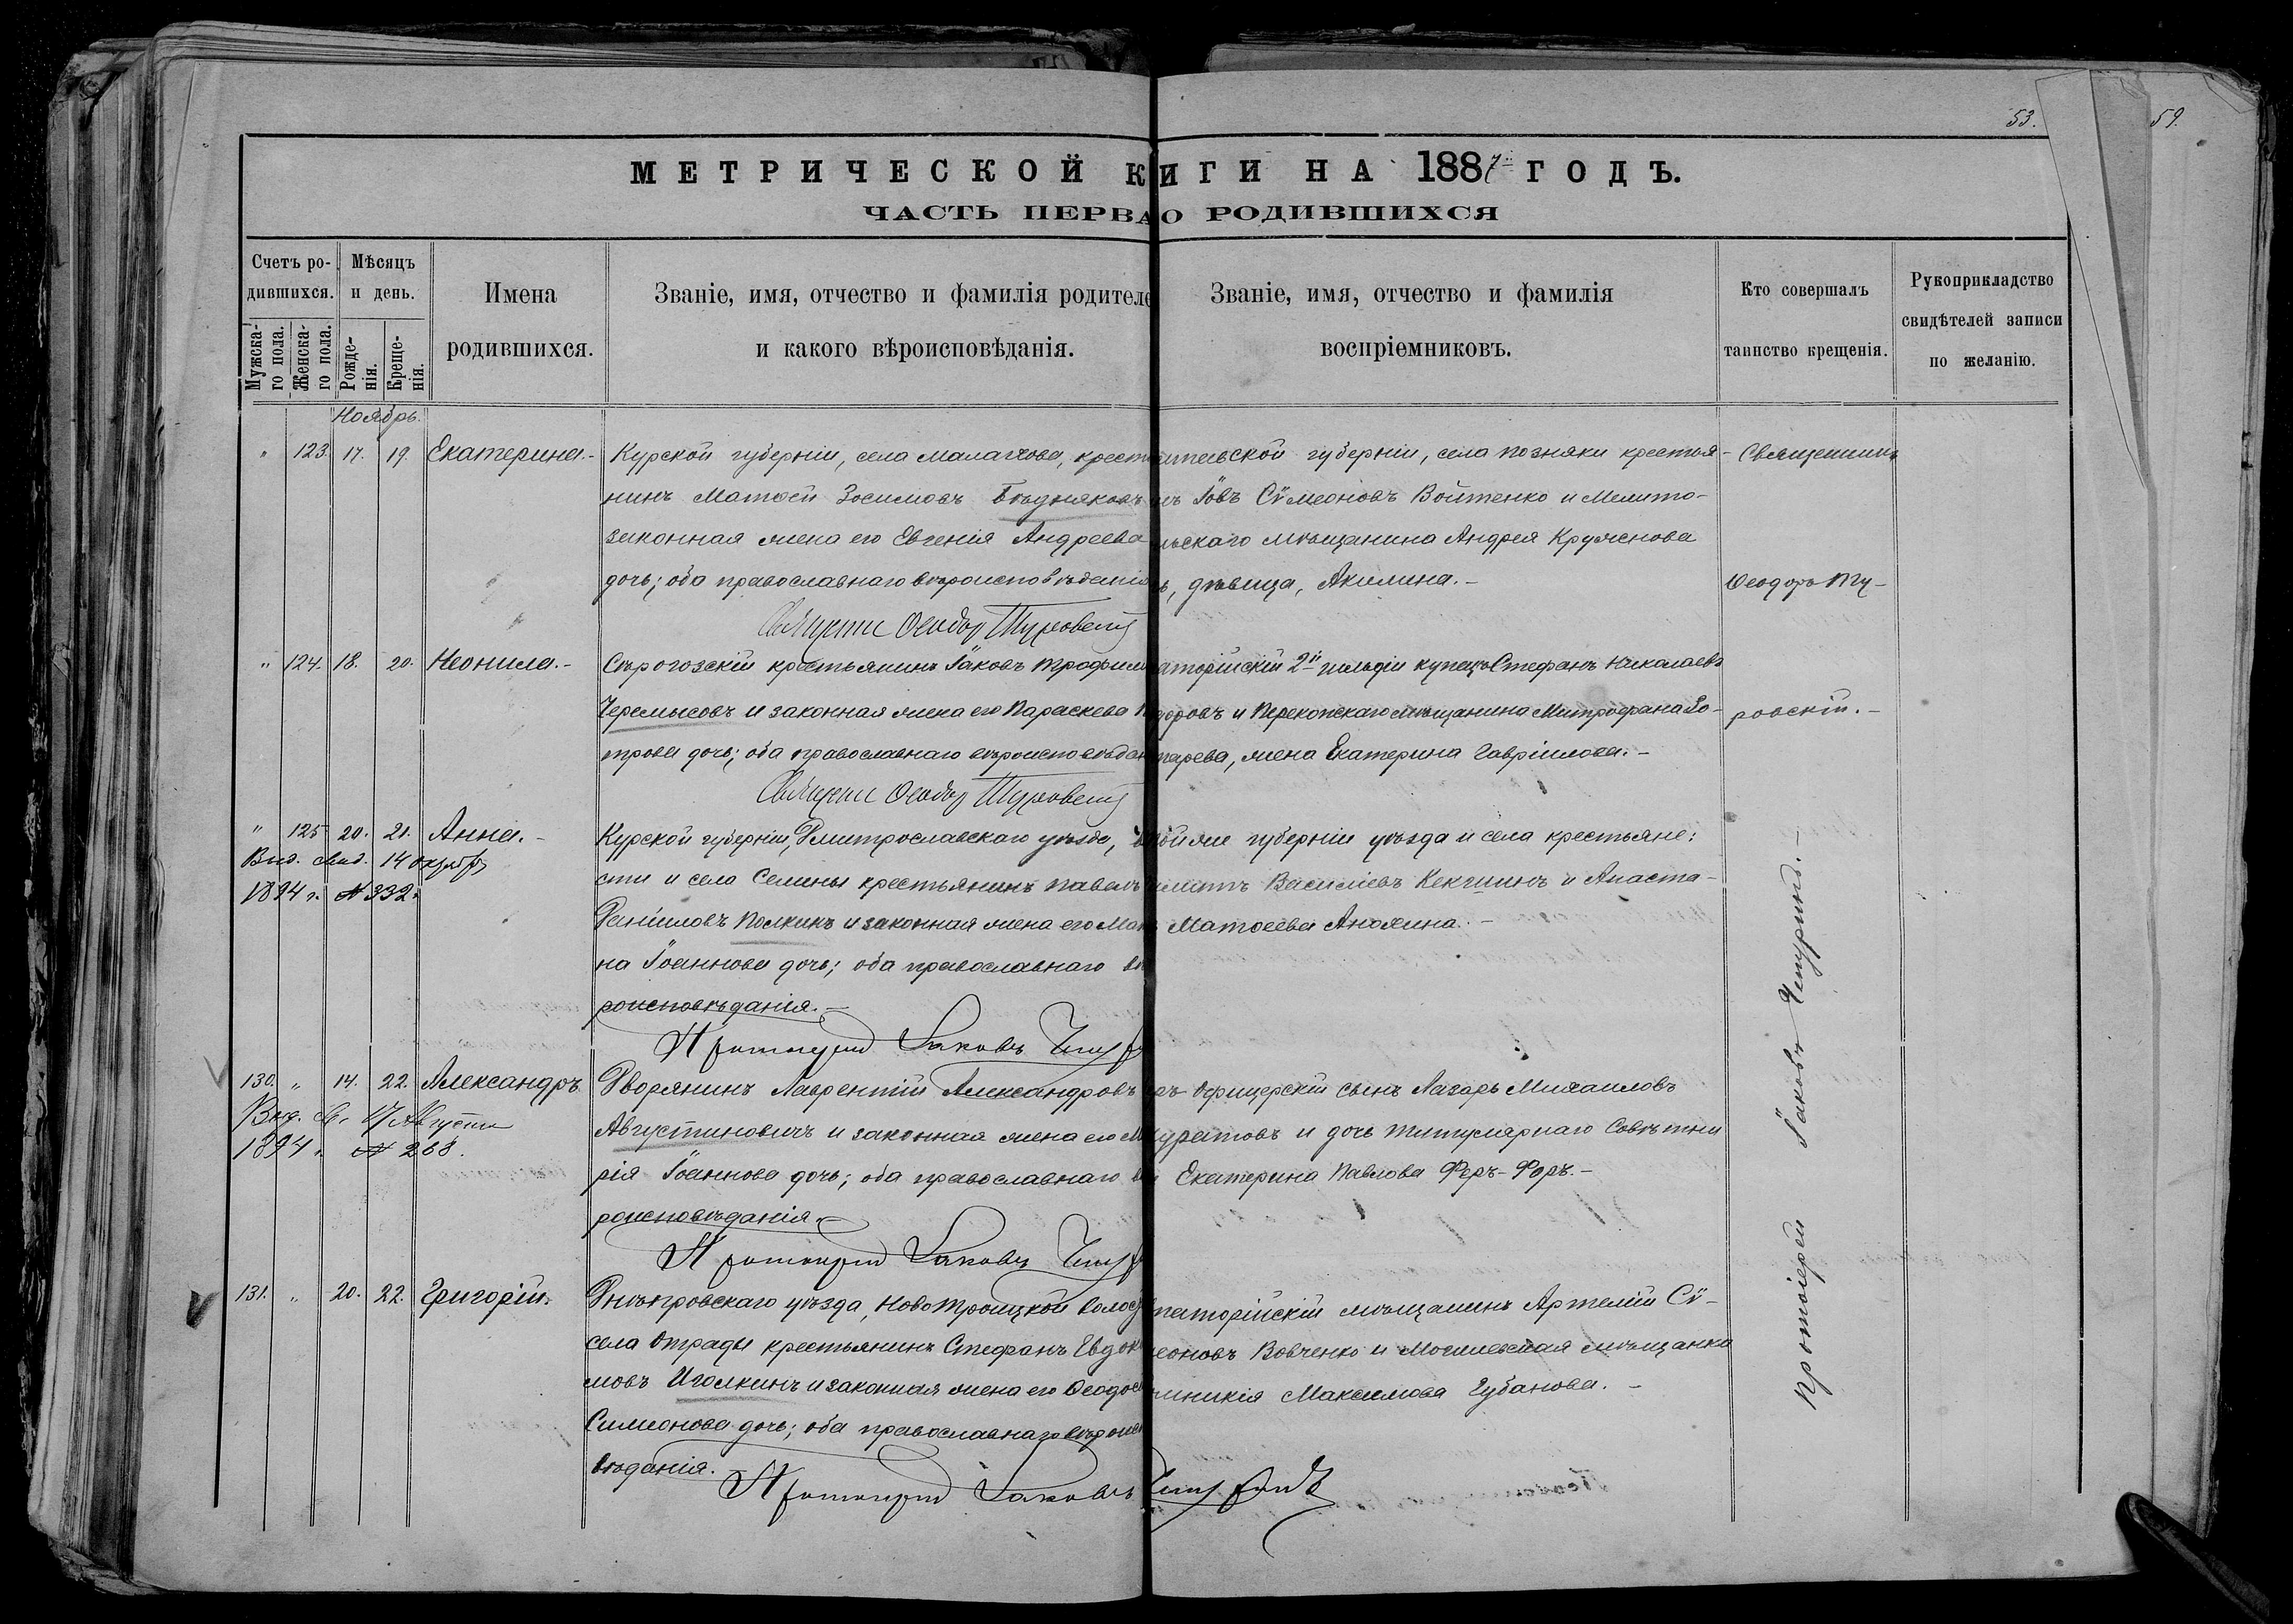 53.
59.
МЕТРИЧЕСКОЙ К ИГИ НА 1887 ГОДЪ.
ЧАСТЬ ПЕРВА О РОДИВШИХСЯ
Счетъ ро-
дившихся.
Мужска-
го пола.
Женска-
го пола.
Мѣсяцъ
и день.
Рожде-
нія.
Креще-
нія.
Имена
родившихся.
Званіе, имя, отчество и фамилія родителе
и какого вѣроисповѣданія.
Званіе, имя, отчество и фамилія
воспріемниковъ.
Кто совершалъ
таинство крещенія.
Рукоприкладство
свидѣтелей записи
по желанію.
Ноябрь.
" 123. 17. 19. Екатерина.-
Курской губерніи, села Малахова, крест
нинъ Матѳей Зосимовъ Бѣдняковъ
законная жена его Евгенія Андреева
дочь; оба православнаго вѣроисповѣданія
Ѳеодоръ
губерніи, села Позняки крестья-
нъ Іовъ Сѵмеоновъ Войтенко и Мелито-
льскаго мѣщанина Андрея Круженова
ь, дѣвица, Акилина.-
Священникъ
Ѳеодоръ Ту-
ровскій.-
" 124. 18. 20. Неонила.-
Сѣрогозскій крестьянинъ Іаковъ Трофим
Черемысовъ и законная жена его Параскева П
трова дочь; оба православнаго вѣроисповѣдан
Ѳеодоръ
аторійскій 2й гильдіи купецъ Стефанъ Николаевъ
доровъ и Перекопскаго мѣщанина Митрофана Го-
тарева, жена Екатерина Гавріилова.-
" 125 20. 21. Анна.-
Выд. свид. 14 октября
1894 г. № 332.
Курской губерніи, Дмитрославскаго уѣзда,
сти и села Селины крестьянинъ Павелъ
Даніиловъ Полкинъ и законная жена его Ма
на Іоаннова дочь; оба православнаго вѣ
роисповѣданія.-
Протоіерей Іаковъ
ой же губерніи уѣзда и села крестьяне:
Василіевъ Кекшинъ и Анаста-
Матѳеева Анохина.-
130. " 14. 22. Александръ.
Выд. св. 17 Августа
1894 г. № 268.
Дворянинъ Лаврентій Александровъ
Августиновичъ и законная жена его М
рія Іоаннова дочь; оба православнаго вѣ
роисповѣданія.-
Протоіерей Іаковъ
ръ-офицерскій сынъ Лазарь Михаиловъ
уратовъ и дочь Титулярнаго Совѣтни
Екатерина Павлова Феръ-Форъ.-
131. " 20. 22. Григорій.
Днѣпровскаго уѣзда, Ново Троицкой волос
села Отрады крестьянинъ Стефанъ Евдок
мовъ Иголкинъ и законная жена его Ѳеодос
Симеонова дочь; оба православнаго вѣроис
вѣданія.
Протоіерей Іаковъ Чепуринъ
паторійскій мѣщанинъ Артемій Сѵ-
еоновъ Вовченко и Могилевская мѣщанка
мникія Максимова Губанова.-
Протоіерей Іаковъ Чепуринъ.-